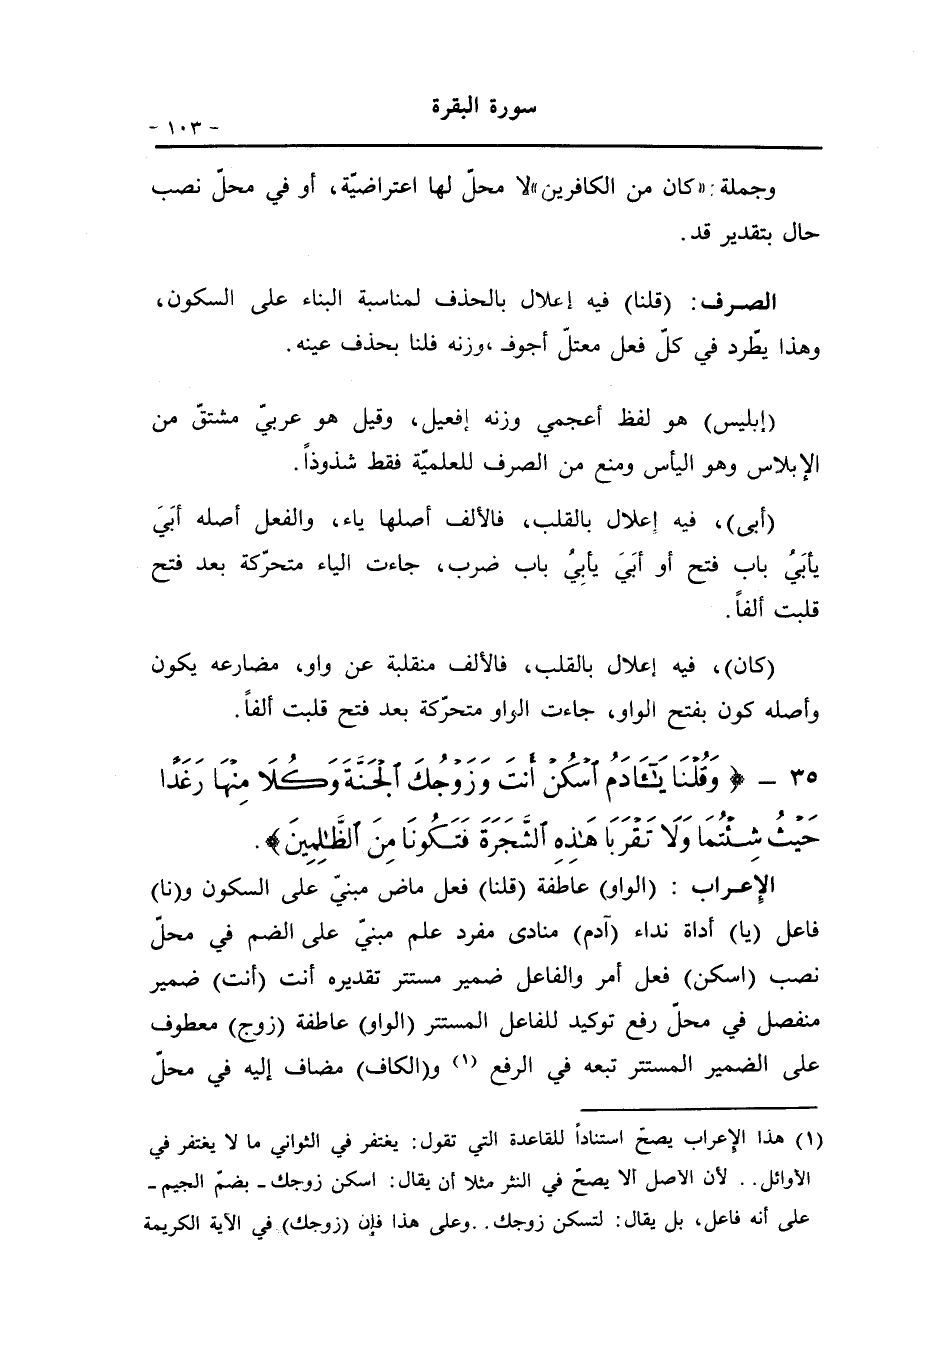 سورة البقرة
- ١٠٣ -
وجملة: «كان من الكافرين» لا محلّ لها اعتراضيّة، أو في محلّ نصب
حال بتقدير قد.
الصرف: (قلنا) فيه إعلال بالحذف لمناسبة البناء على السكون،
وهذا يطّرد في كلّ فعل معتلّ أجوف ،وزنه فلنا بحذف عينه.
(إبليس) هو لفظ أعجمي وزنه إفعيل، وقيل هو عربيّ مشتقّ من
الإبلاس وهو اليأس ومنع من الصرف للعلميّة فقط شذوذاً.
(أبى)، فيه إعلال بالقلب، فالألف أصلها ياء، والفعل أصله أبَيَ
يأبَيُ باب فتح أو أبَيَ يأبِيُ باب ضرب، جاءت الياء متحرّكة بعد فتح
قلبت ألفاً.
(كان)، فيه إعلال بالقلب، فالألف منقلبة عن واو، مضارعه يكون
وأصله كون بفتح الواو، جاءت الواو متحرّكة بعد فتح قلبت ألفاً.
٣٥ - ﴿ وَقُلْنَا يَـٰٓـَٔادَمُ ٱسْكُنْ أَنتَ وَزَوْجُكَ ٱلْجَنَّةَ وَكُلَا مِنْهَا رَغَدًا
حَيْثُ شِئْتُمَا وَلَا تَقْرَبَا هَـٰذِهِ ٱلشَّجَرَةَ فَتَكُونَا مِنَ ٱلظَّـٰلِمِينَ﴾.
الإعراب : (الواو) عاطفة (قلنا) فعل ماض مبنيّ على السكون و(نا)
فاعل (يا) أداة نداء (آدم) منادى مفرد علم مبنيّ على الضم في محلّ
نصب (اسكن) فعل أمر والفاعل ضمير مستتر تقديره أنت (أنت) ضمير
منفصل في محلّ رفع توكيد للفاعل المستتر (الواو) عاطفة (زوج) معطوف
على الضمير المستتر تبعه في الرفع (١) و(الكاف) مضاف إليه في محلّ
(١) هذا الإعراب يصحّ استناداً للقاعدة التي تقول: يغتفر في الثواني ما لا يغتفر في
الأوائل.. لأن الاصل ألا يصحّ في النثر مثلا أن يقال: اسكن زوجك ـ بضمّ الجيم ـ
على أنه فاعل، بل يقال: لتسكن زوجك.. وعلى هذا فإن (زوجك) في الآية الكريمة